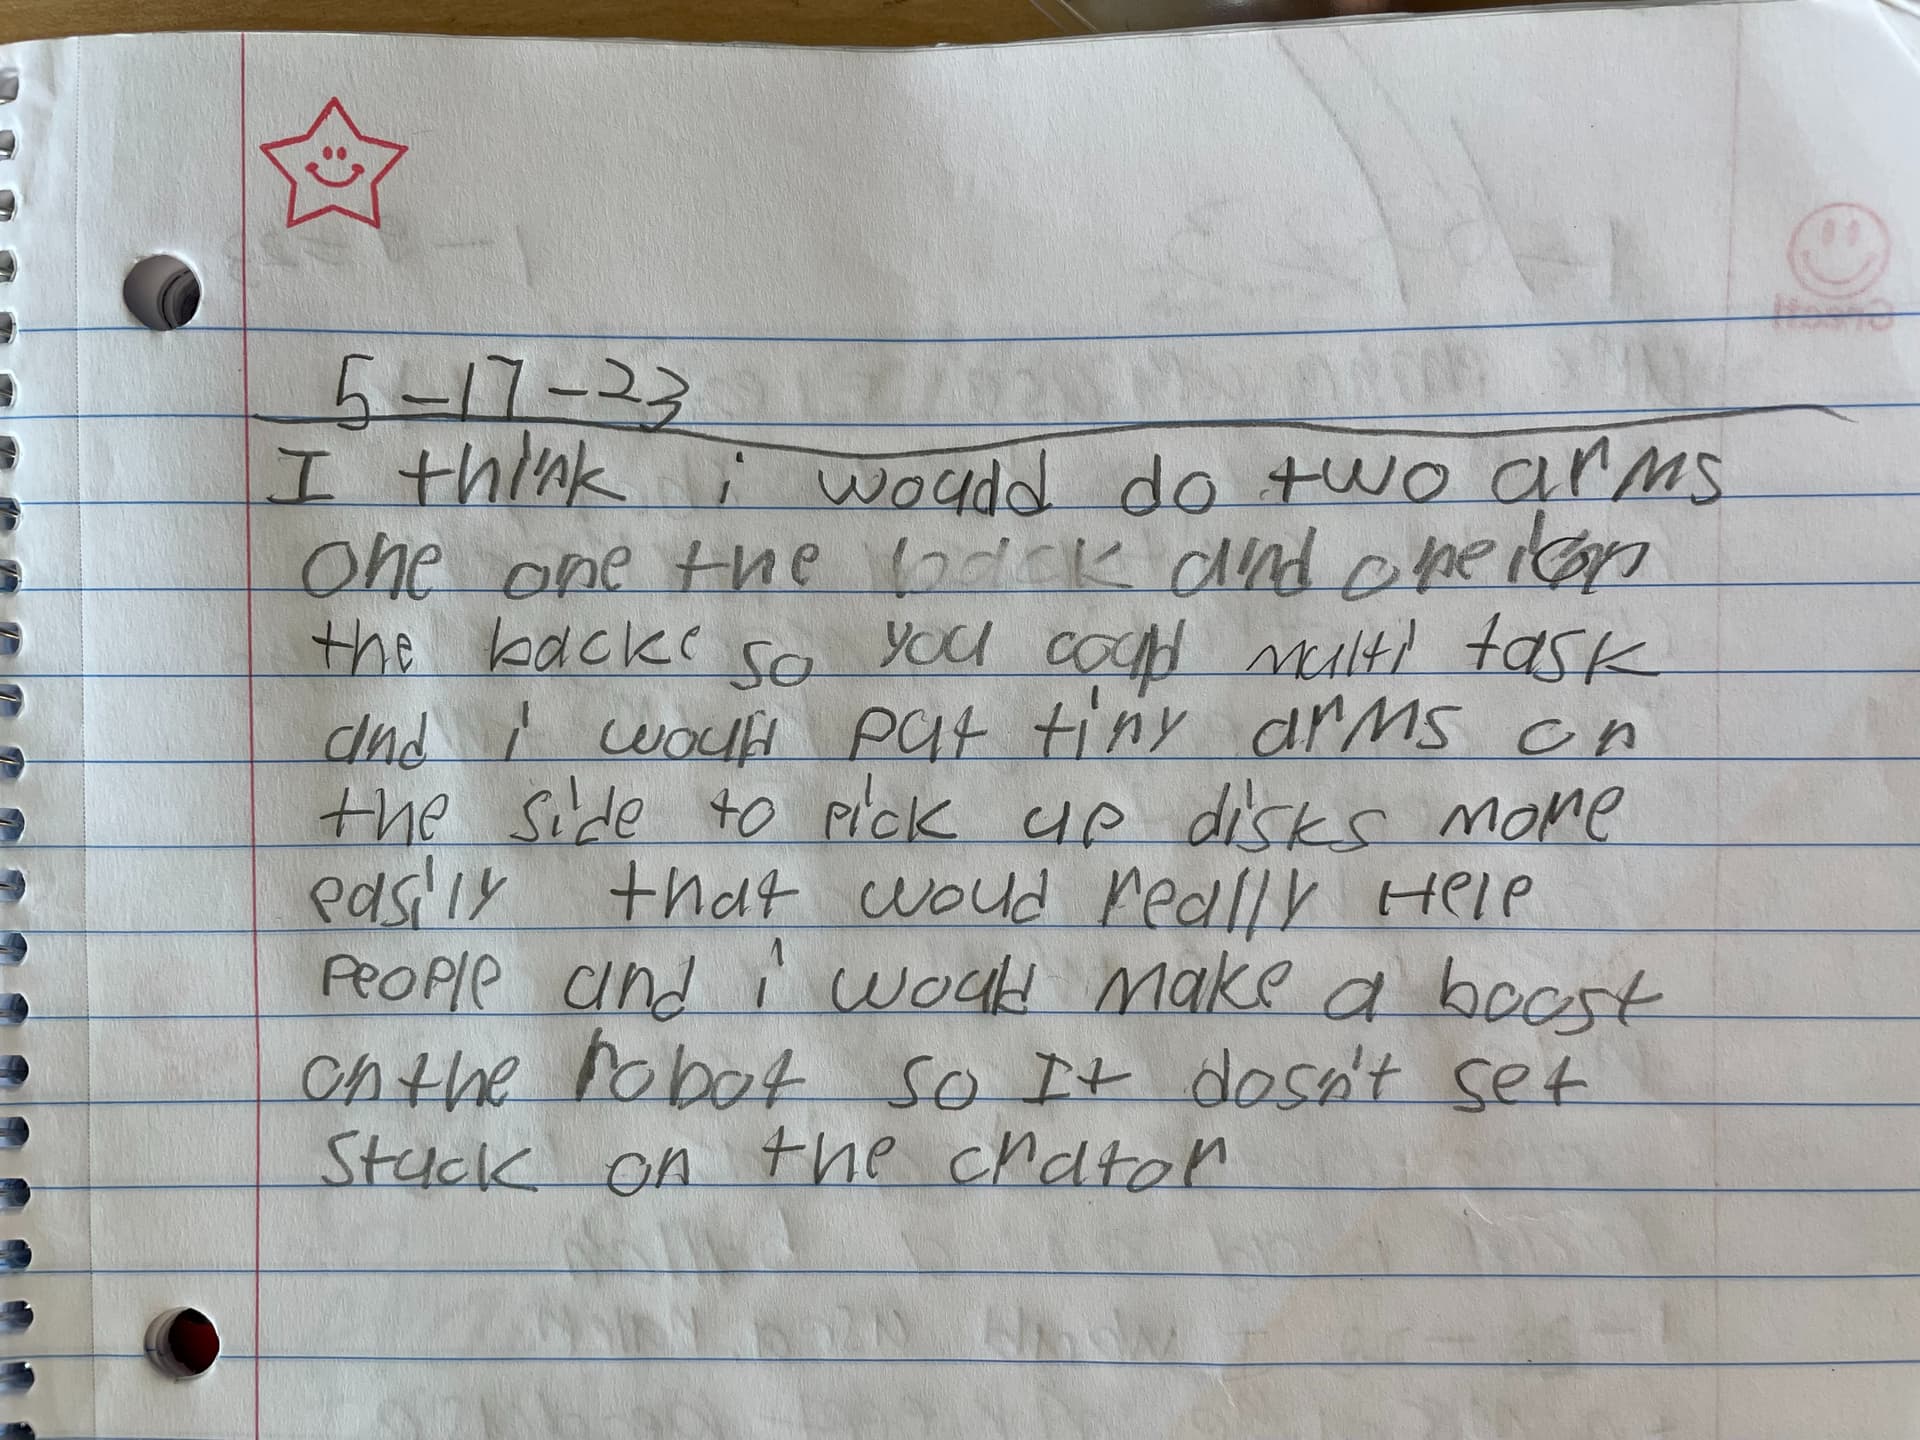 5-17-23
I think i woudd do two arms
one one the back and one on
the backe so you could multi task
and i would put tiny arms on
the side to pick up disks more
easily that woud really Help
people and i would make a boost
on the robot so It dosn't set
stuck on the crator
Great!